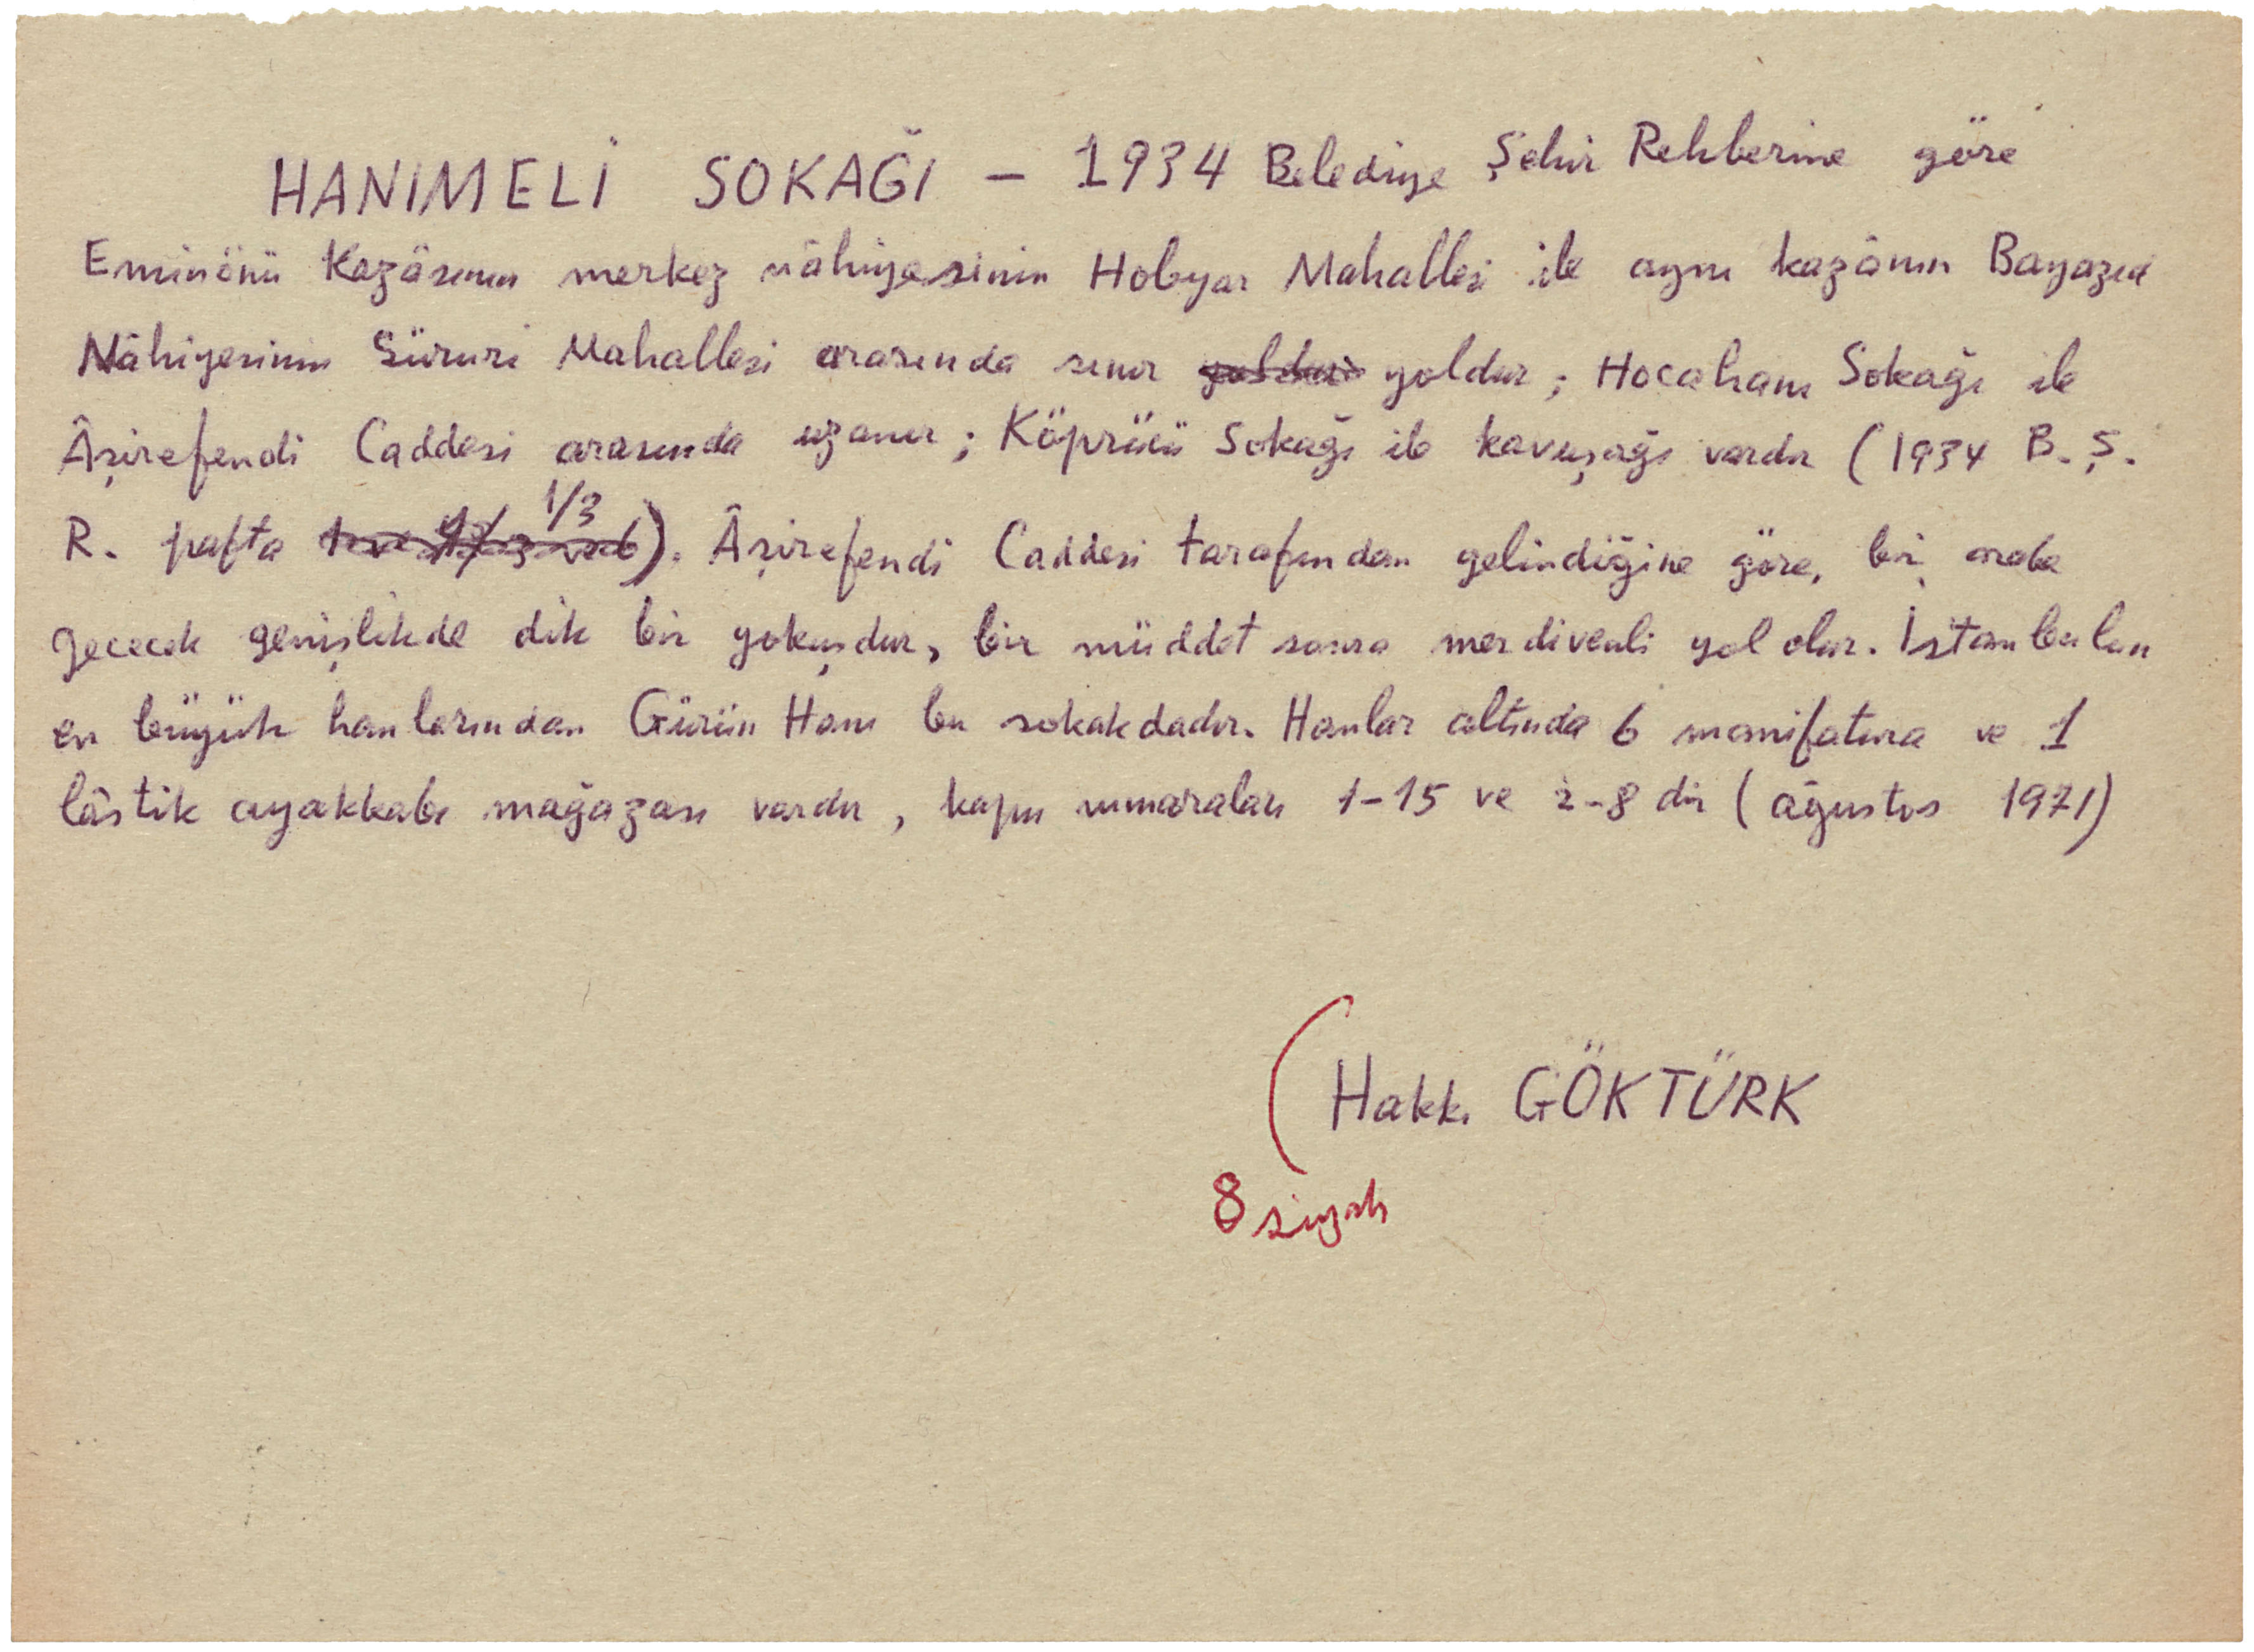 HANIMELİ SOKAĞI – 1934 Belediye Şehir Rehberine göre
Eminönü Kazâsının merkez nâhiyesinin Hobyar Mahallesi ile aynı kazânın Bayazıd
Nâhiyesinin Sürurî Mahallesi arasında sınır yoldur ; Hocahanı Sokağı ile
Âşirefendi Caddesi arasında uzanır ; Köprücü Sokağı ile kavuşağı vardır (1934 B. Ş.
R. pafta 1/3). Âşirefendi Caddesi tarafından gelindiğine göre, bir araba
geçecek genişlikde dik bir yokuşdur, bir müddet sonra merdivenli yol olur. İstanbulun
en büyük hanlarından Gürün Hanı bu sokakdadır. Hanlar altında 6 manifatura ve 1
lâstik ayakkabı mağazası vardır, kapu numaraları 1-15 ve 2-8 dir (ağustos 1971)
(Hakkı GÖKTÜRK
8 siyah